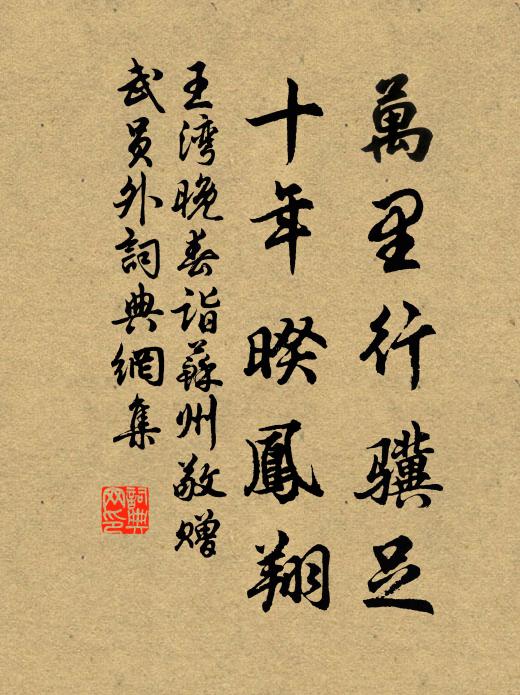 萬里行骥足
十年暌鳳翔
王湾晚春詣蘇州敬赠
武員外詞典網集
詞典
网印